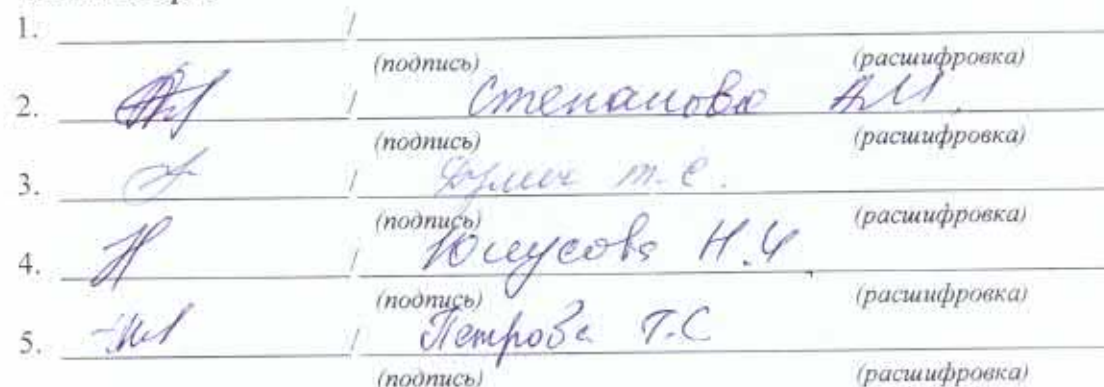 1. /
(подпись) (расшифровка)
2. / Степанова А.И.
(подпись) (расшифровка)
3. / т.С.
(подпись) (расшифровка)
4. / Юнусова Н.Ч
(подпись) (расшифровка)
5. / Петрова Т.С
(подпись) (расшифровка)